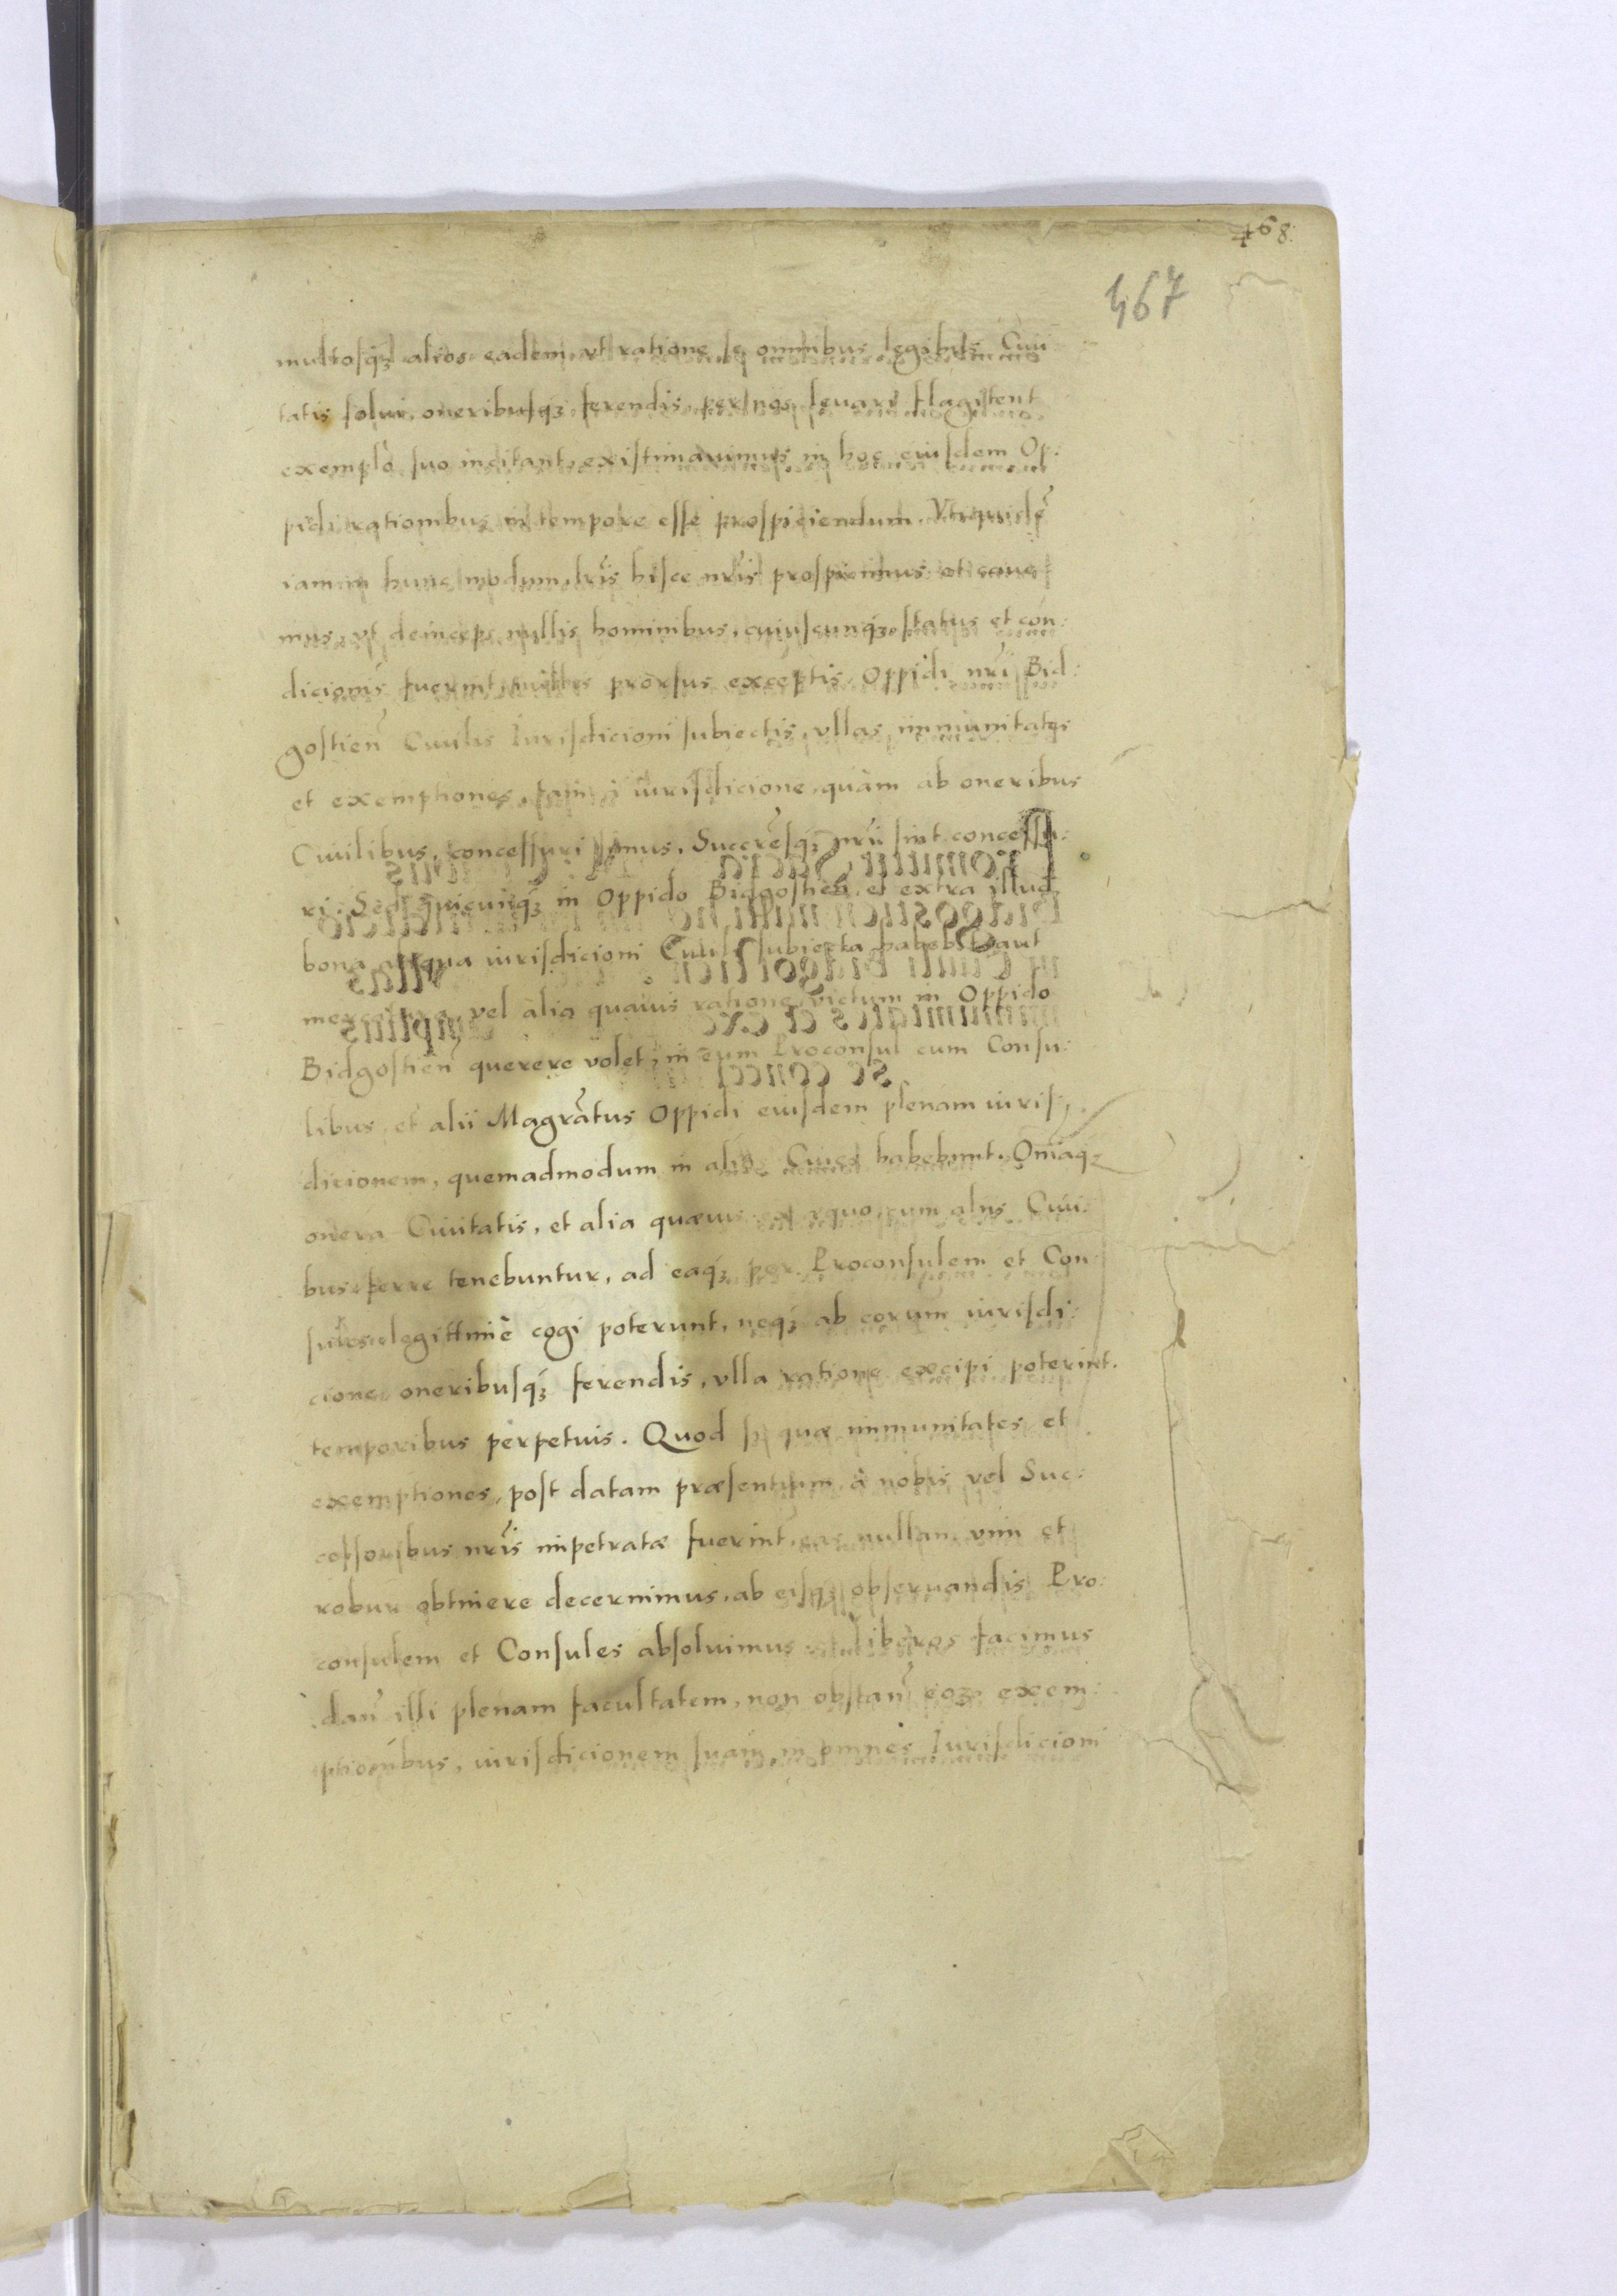 468.
467
multosq́ꝫ alios eadem vt ratione se omnibus legibus Ciui
tatis solui, oneribusq́ꝫ ferendis, per nos leuari flagitent
exemplo suo incitant, existimauimus in hoc eiusdem Op:
pidi rationibus in tempore esse prospiciendum. Vtquidē
iam in hunc modum, lr̃is hisce nr̃is prospicimus et caue
mus, vt deinceps nullis hominibus, cuiuscunq́ꝫ status et con:
dicionis fuerint, nullis prorsus exceptis, Oppidi nr̃i Bid:
gostien̄ Ciuilis Iurisdicioni subiectis, vllas immunitates
et exemptiones, tam à iurisdicione, quàm ab oneribus
Ciuilibus, concessuri simus, Succr̄esq́ꝫ nr̃i sint concessu:
ri. Sed quicunq́ꝫ in Oppido Bidgostien̄, et extra illud
bona aliqua iurisdicioni Ciuili subiecta habebit aut
mercatura, vel alia quauis ratione, victum in Oppido
Bidgostien̄ querere volet, in eum Proconsul cum Consu:
libus, et alii Magr̃atus Oppidi eiusdem plenam iuris:
dicionem, quemadmodum in alios Ciues habebunt. Om̄iaq́ꝫ
onera Ciuitatis, et alia quæuis ex æquo cum aliis Ciui:
bus ferre tenebuntur, ad eaq́ꝫ per Proconsulem et Con
sules legittimè cogi poterunt, neq́ꝫ ab eorum iurisdi:
cione oneribusq́ꝫ ferendis, vlla ratione excipi poterint.
temporibus perpetuis. Quod si quæ immunitates et
exemptiones, post datam præsentium, à nobis vel Suc:
cessoribus nr̃is impetratæ fuerint, eas nullam vim et
robur obtinere decernimus, ab eisq́ꝫ obseruandis Pro:
consulem et Consules absoluimus et liberos facimus
dan̄ illi plenam facultatem, non obstan̄ eoꝝ exem:
ptionibus, iurisdicionem suam in omnes Iurisdicioni